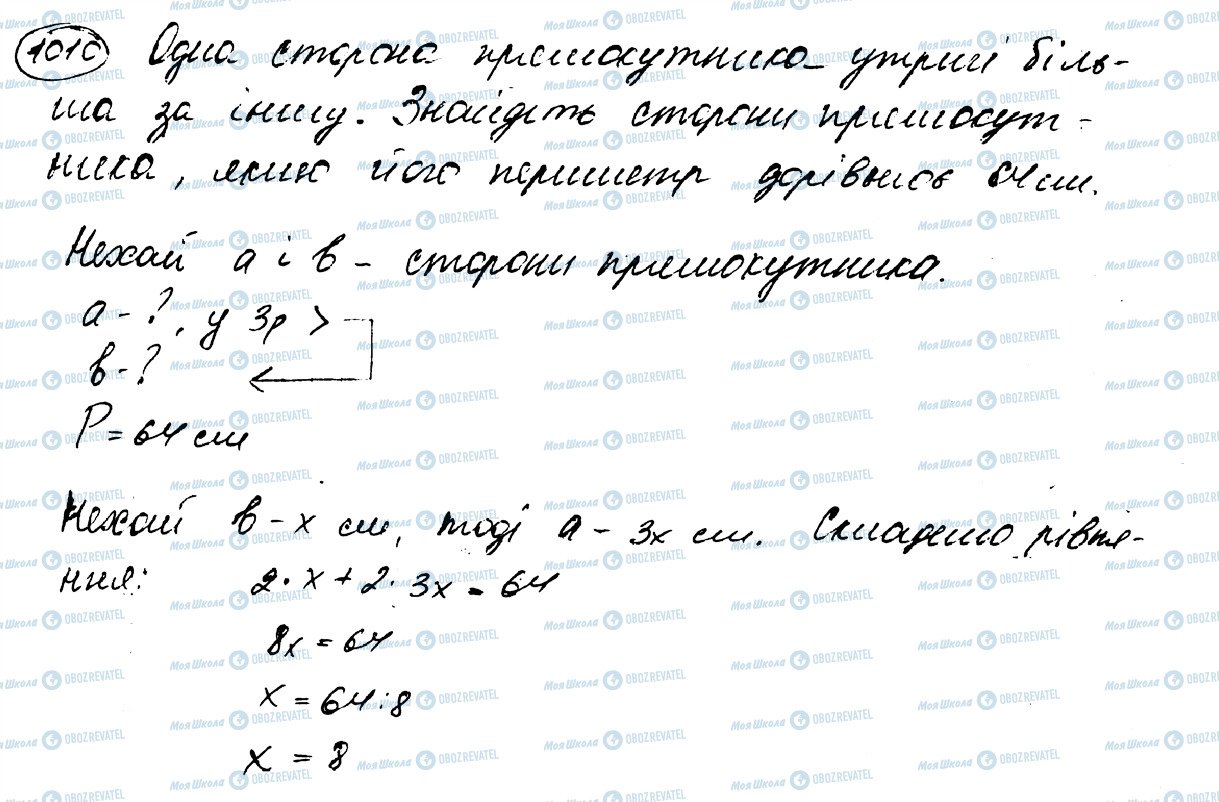 1010 Одна сторона прямокутника утричі біль-
ша за іншу. Знайдіть сторони прямокут-
ника, якщо його периметр дорівнює 64 см.
Нехай а і в - сторони прямокутника.
а - ?, у 3р >
в - ?
Р = 64 см
Нехай в - х см, тоді а - 3х см. Складемо рівня-
ння: 2·х + 2·3х = 64
8х = 64
х = 64:8
х = 8